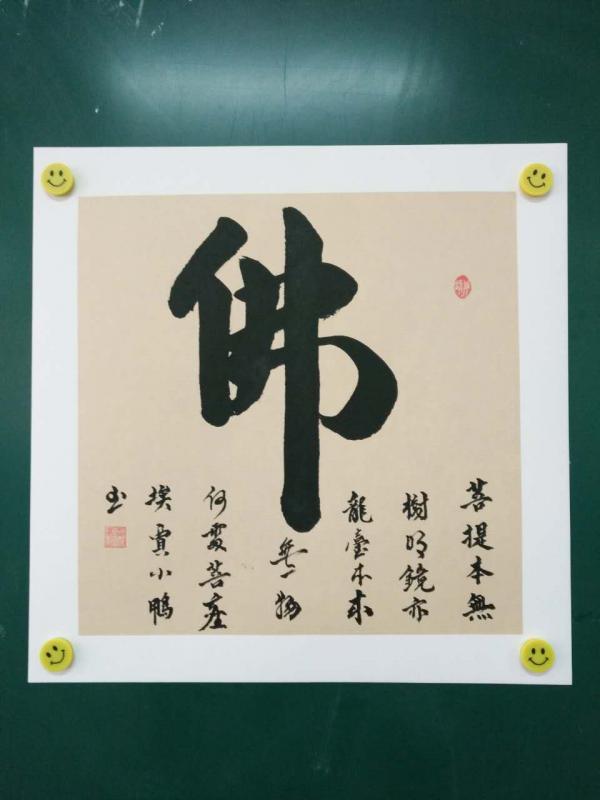 佛
菩提本無
樹明鏡亦
龍臺本来
無一物
何處菩塵
埃賈小鴨
书